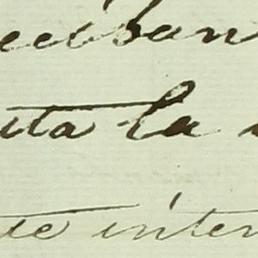 eciban
uta la
te inter